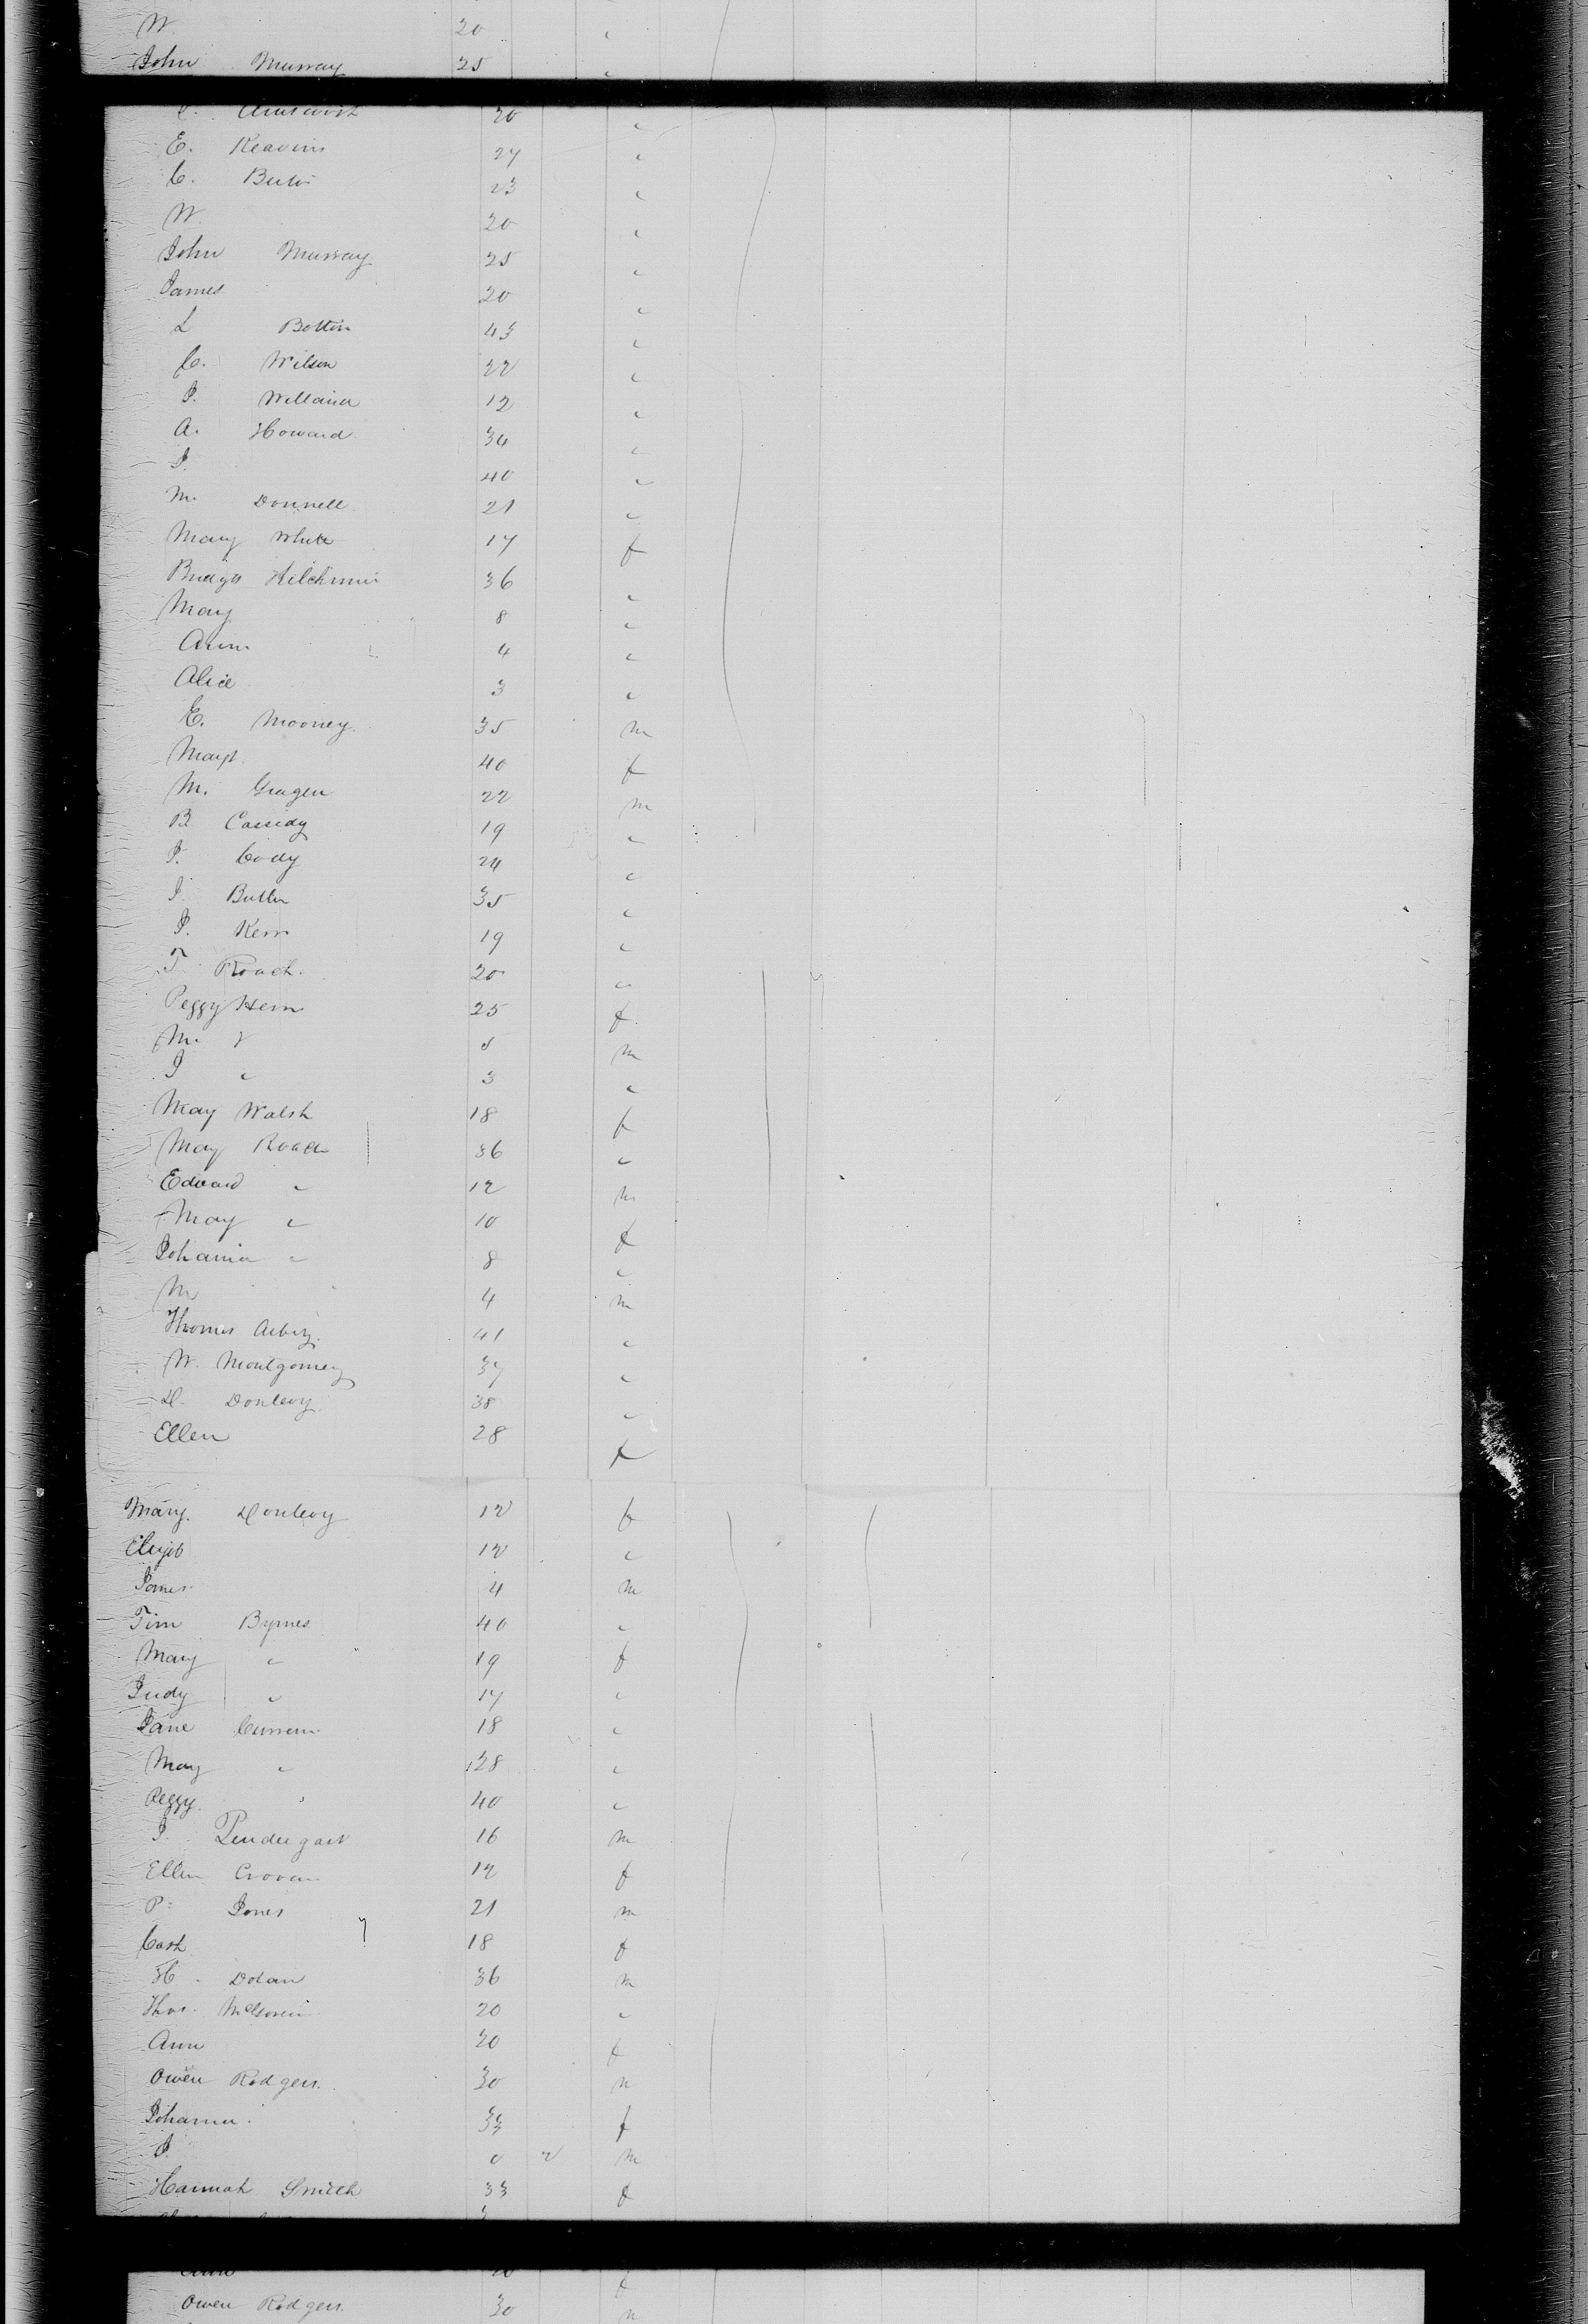 W. 20 "
John Murray 25 "
20 "
E. Keavins 27 "
C. 23 "
W. 20 "
John Murray 25 "
James 20 "
L Botton 43 "
C. Wilson 22 "
J. 12 "
A. Howard 34 "
J. 40 "
M. Donnell 21 "
Mary White 17 f
36 "
Mary 8 "
Ann 4 "
Alice 3 "
E. Mooney 35 m
Mary 40 f
M. 22 m
B Cassidy 19 "
J. Cody 24 "
J Butler 35 "
J. Kern 19 "
T Roach 20 "
Peggy Kern 25 f
M. " 5 m
J " 3 "
May Walsh 18 f
May Roach 36 "
Edward " 12 m
May " 10 f
Johanna " 8 "
M 4 m
Thomas 41 "
W. Montgomery 37 "
D. Donlevy 38 "
Ellen 28 f
Mary Donlevy 12 f
12 "
James 4 m
Tim Byrnes 40 "
Mary " 19 f
Judy " 17 "
Jane 18 "
May " 28 "
Peggy " 40 "
J. Pendergast 16 m
Ellen 12 f
P. Jones 21 m
Cath 18 f
H. Dolan 36 m
Thos. 20 "
Ann 20 f
Owen Rodgers 30 m
Johanna 33 f
J. 0 2 m
Hannah Smith 33 f
Ann 20 f
Owen Rodgers 30 m